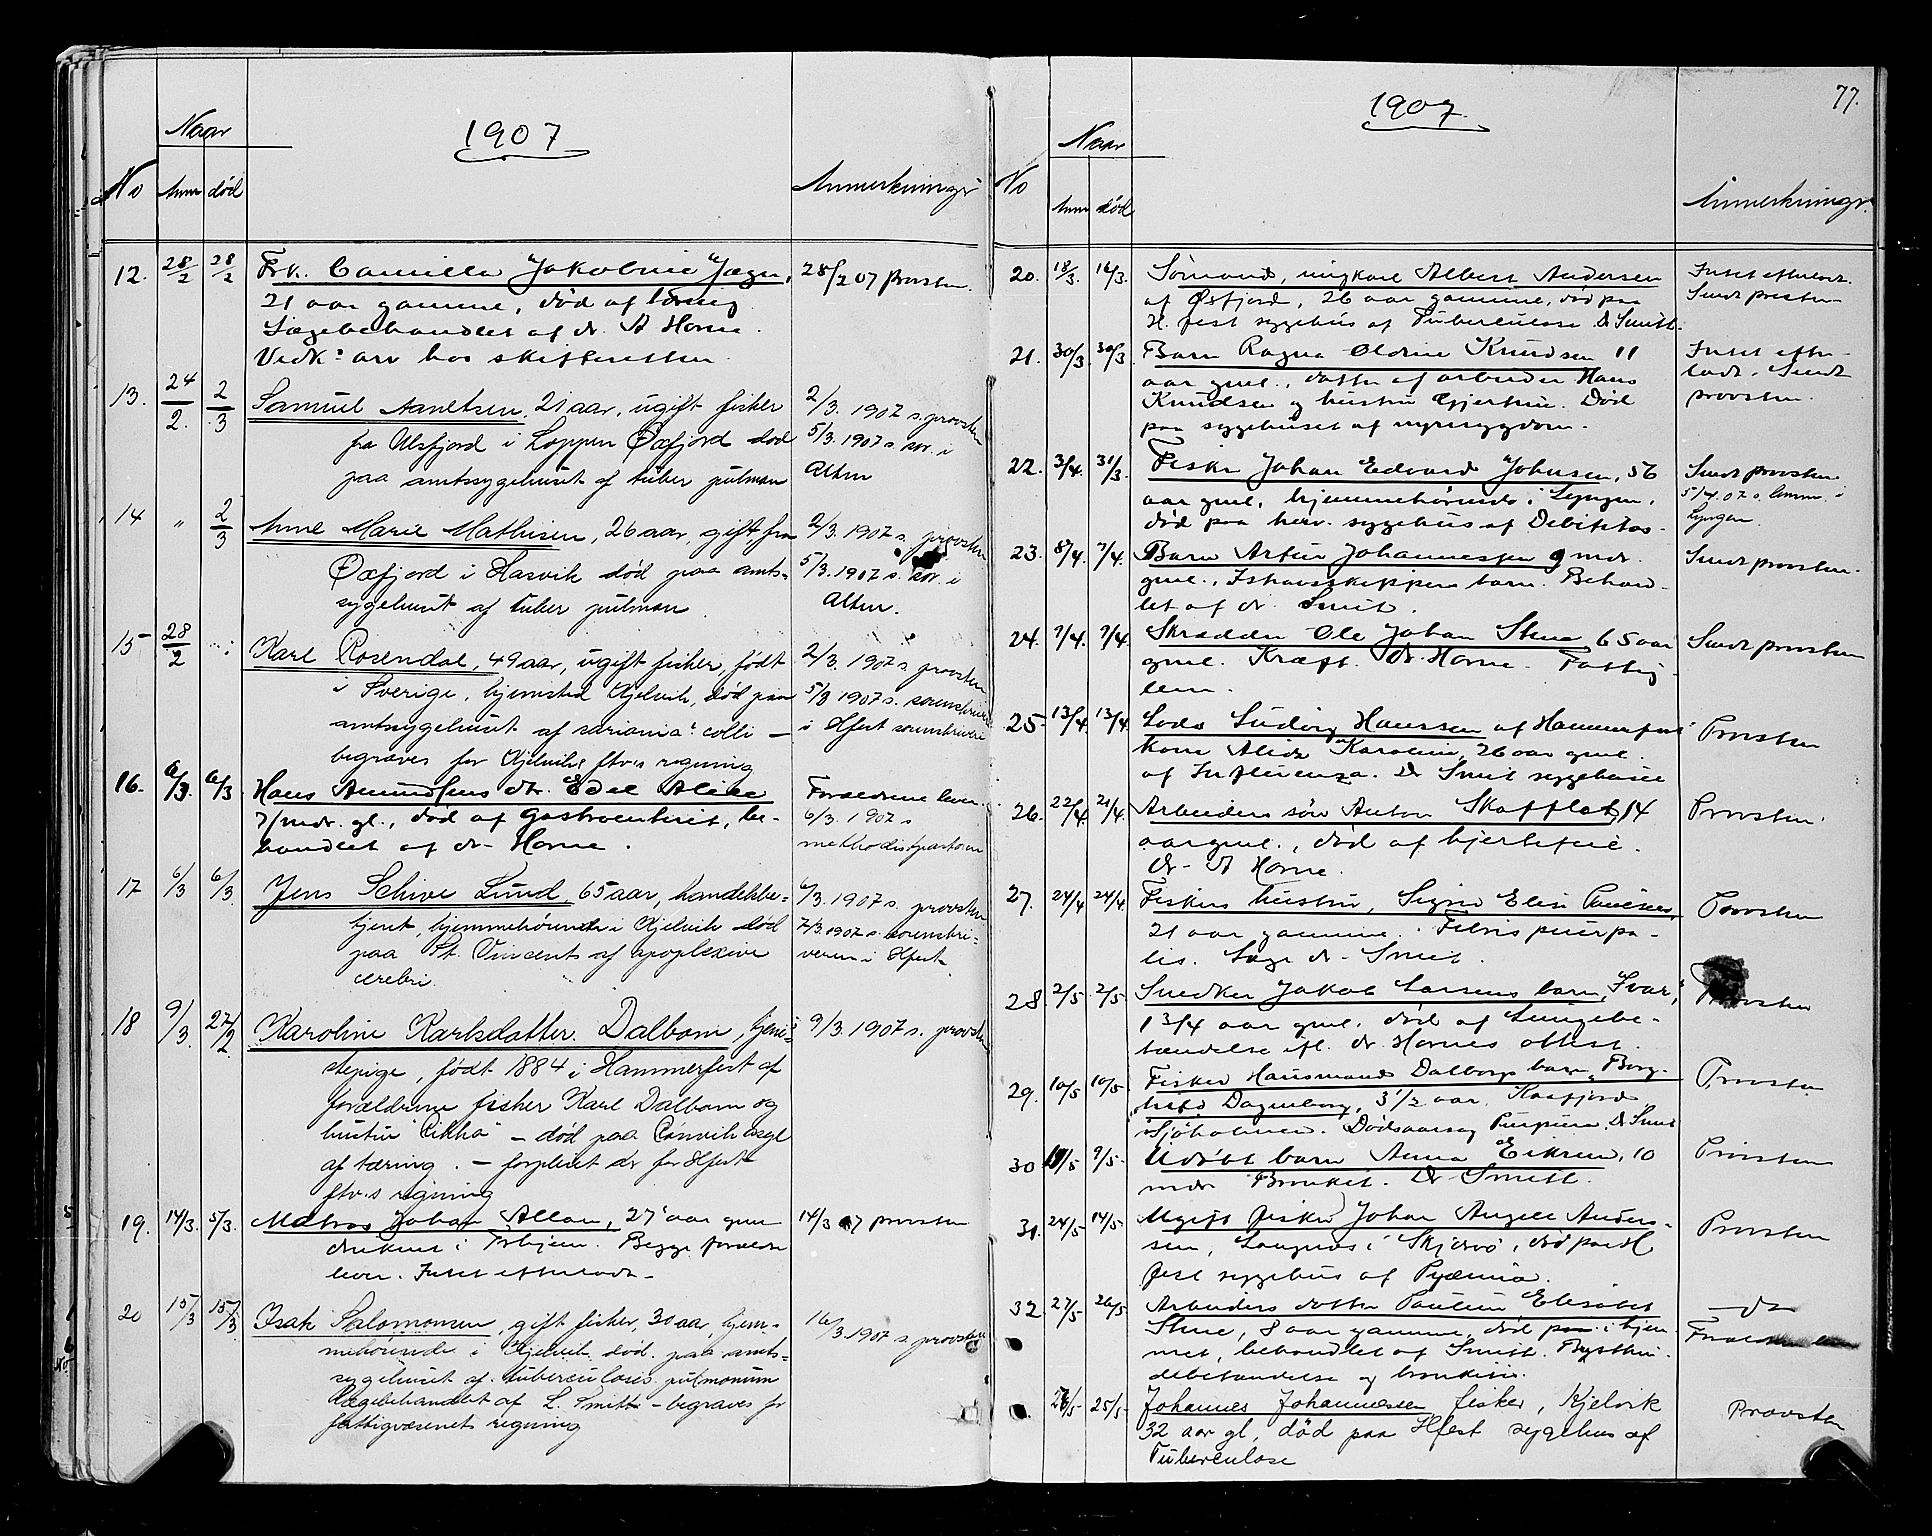 1907
Naar
No Anm død
Anmerkninger
12. 28/2 28/2 Frk. Camilla Jakobine Jæger, 28/2 07 provsten.
21 aar gamme, død af tæring
Lægebehandlet af dr. A Horne.
Vedk: arv hos skifteretten.
13. 24/2. 2/3 Samuel Anetsen, 21 aar, ugift fisker 2/3. 1907 s. provsten
fra Ulsfjord i Loppen Øxfjord død 5/3. 1907 s. sor. i
paa amtssygehuset af tuber pulman Alten
14 " 2/3 Anne Marie Mathisen, 26 aar, gift, fra 2/3. 1907 s. provsten
Øxfjord i Hasvik død paa amts- 5/3. 1907 s. sor. i
sygehuset af tuber pulman. Alten.
15 28/2 Karl Rosendal, 49 aar, ugift fisker, født 2/3. 1907 s provsten
i Sverige, hjemsted Kjelvik, død paa 5/3 1907 s. sorenskriver
amtssygehuset af colli – i Hfest sorenskriveri
begraves for Kjelviks ftv.s regning
16. 6/3 6/3 Hans Amundsens dtr. Edel Alice Forældrene lever.
7/mdr. gl., død af Gastroenterit, be- 6/3. 1907 s
handlet af dr. Horne. methodistpastoren
17 6/3 6/3 Jens Schive Lund 65 aar, handelsbe- 6/3. 1907 s. provsten
tjent, hjemmehørende i Kjelvik død 7/3. 1907 s. sorenskri-
paa St. Vincent af apoplexive veren i Hfest.
cerebri.
18 9/3. 27/2 Karoline Karlsdatter Dalbom, tjene- 9/3. 1907 s. provsten
stepige, født 1884 i Hammerfest af
forældrene fisker Karl Dalbom og
hustru "Pikka" – død paa Rønvik asyl
af tæring. – forpleiet der for Hfest
ftv.s regning
19. 14/3. 5/3. Matros Johan Allan, 27 aar gml 14/3 07 provsten
druknet i Trhjem. Begge forældre
lever. Intet efterladt.
20 15/3 15/3. Isak Salomonsen, gift fisker, 30 aar, hjem- 16/3. 1907 s provsten
mehørende i Kjelvik død. paa amts-
sygehuset af tuberculosis pulmonum
lægebehandlet af L. Smitt – begraves for
fattigvæsenet regning
77.
1907.
Naar
No Anm død
Anmerkninger.
20. 18/3. 16/3. Sømand, ungkarl Albert Andersen Intet efterladt.
af Øsfjord, 26 aar gamme, død paa Sendt presten
H. fest sygehus af Tuberculose Dr Smitt.
21. 30/3 30/3 Barn Ragna Oldine Knudsen 11 Intet efter-
aar gml., datter af arbeider Hans ladt. Sendt
Knudsen og hustru Gjertine. Død provsten.
paa sygehuset af nyresygdom.
22. 3/4. 31/3 Fisker Johan Edvard Johnsen, 56 Sendt provsten
aar gml. hjemmehørende i Lyngen, 5/4. 07 s. lensm. i
død paa herv. sygehus af Debilitas. Lyngen.
23. 8/4. 7/4. Barn Artur Johannessen 9 mdr Sendt provsten.
gml., Ishavsskippers barn. Behand-
let af dr. Smit.
24. 7/4. 7/4. Skrædder Ole Johan Stene 65 aar Sendt provsten
gml. Kræft. Dr. Horne. Fattig
lem.
25 13/4. 13/4. Lods Ludvig Hanssen af Hammerfest Provsten
kone Alida Karoline, 26 aar gml.
af Influenza. Dr Smit sygehuset
26. 22/4. 21/4. Arbeiders søn Anton Skafflet, 14 Provsten.
aar gml., død af hjertefeil.
dr. A Horne.
27. 24/4 24/4. Fiskers hustru, Signe Elise Paulsen, Provsten
21 aar gamme. Febris puerpa-
lis. Læge dr. Smit.
28 2/5. 2/5. Snedker Jakob Larsens barn, Ivar, Provsten
1 3/4 aar gml. død af Lungebe-
tændelse efl. dr. Hornes attest.
29. 10/5 10/5. Fisker Hansmand Dalborgs barn "Borg- Provsten
hild Dagenborg, 3 1/2 aar, Kaafjord
Sjøholmen. Dødsaarsag Purpura. Dr Smit
30 11/5 9/5. Udøbt barn Anna Eiksen, 10 Provsten
mdr Bronkit. Dr Smitt.
31. 24/5 14/5. Ugift fisker Johan Angell Anders- Provsten
sen, Langnes i Skjervø, død paa H
fest sygehus af Pyæmia.
32. 27/5 26/5 Arbeiders datter Pauline Elisabet – do
Stene, 8 aar gamme, død i hjem-
met, behandlet af Smitt. Brysthin-
debetændelse og bronkitis.
27/5. 25/5. Johannes Johannessen fisker, Kjelvik Provsten
32 aar gl, død paa Hfest sygehus af
Tuberculose